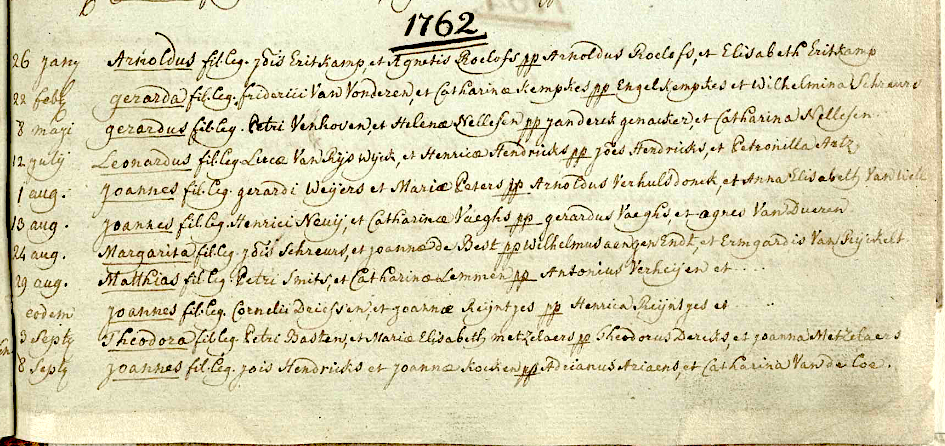 1762
26 jany Arnoldus fil. leg. jois Eritkamp, et Agnetis Roelofs pp Arnoldus Roelofs, et Elisabeth Eritkamp
22 feb gerarda fil. leg. friderici Van Vonderen, et Catharinæ Kempkes pp Engel Kempkes et Wilhelmina Schreurs
8 maji gerardus fil. leg. Petri Venhoven, et Helenæ Nellesen pp jan derck genacker, et Catharina Nellesen
12 julij Leonardus fil. leg. Lucæ Van Rijswijck, et Henricæ Hendricks pp joes Hendricks, et Petronilla Artz
1 aug. joannes fil. leg. gerardi Weijers et Mariæ Peters pp Arnoldus Verhulsdonck, et Anna Elisabeth Van
13 aug. joannes fil. leg. Henrici Neuij, et Catharinæ Vaeghs pp gerardus Vaeghs, et agnes Van Dueren
24 aug. Margarita fil. leg. jois Schreurs, et joannæ de Best pp Wilhelmus aengen Endt, et Ermgardis Van Rijckelt
29 aug. Matthias fil. leg. Petri Smits, et Catharinæ Lemmen pp Antonius Verheijen et ....
eodem joannes fil. leg. Cornelii Driessen, et joannæ Reijntjes pp Henrica Reijntjes et
3 Septy Theodora fil. leg. Petri Basten, et Mariæ Elisabeth metzelaers pp Theodorus Dercks, et joanna Metzelaers
8 Septy joannes fil. leg. jois Hendricks et joannæ Kocken pp Adrianus Ariaens, et Catharina Van de Loe.